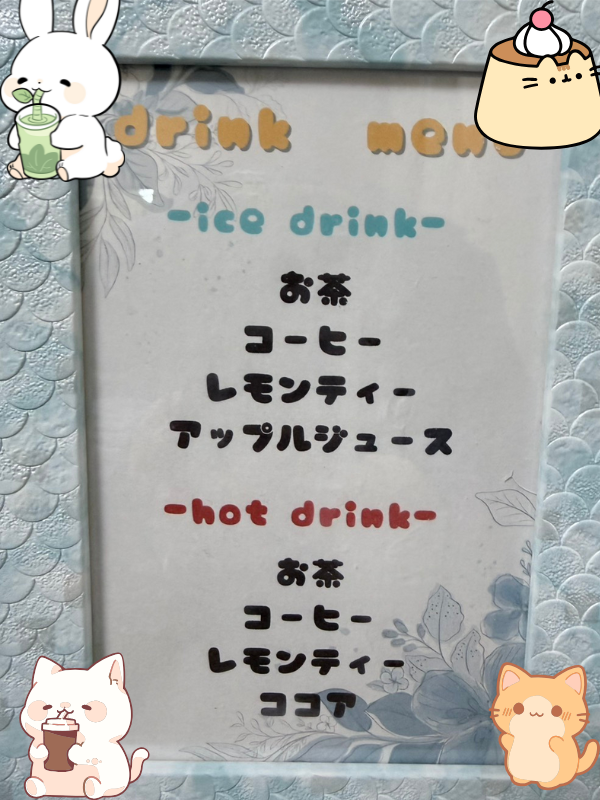 drink menu
-ice drink-
お茶
コーヒー
レモンティー
アップルジュース
-hot drink-
お茶
コーヒー
レモンティー
ココア